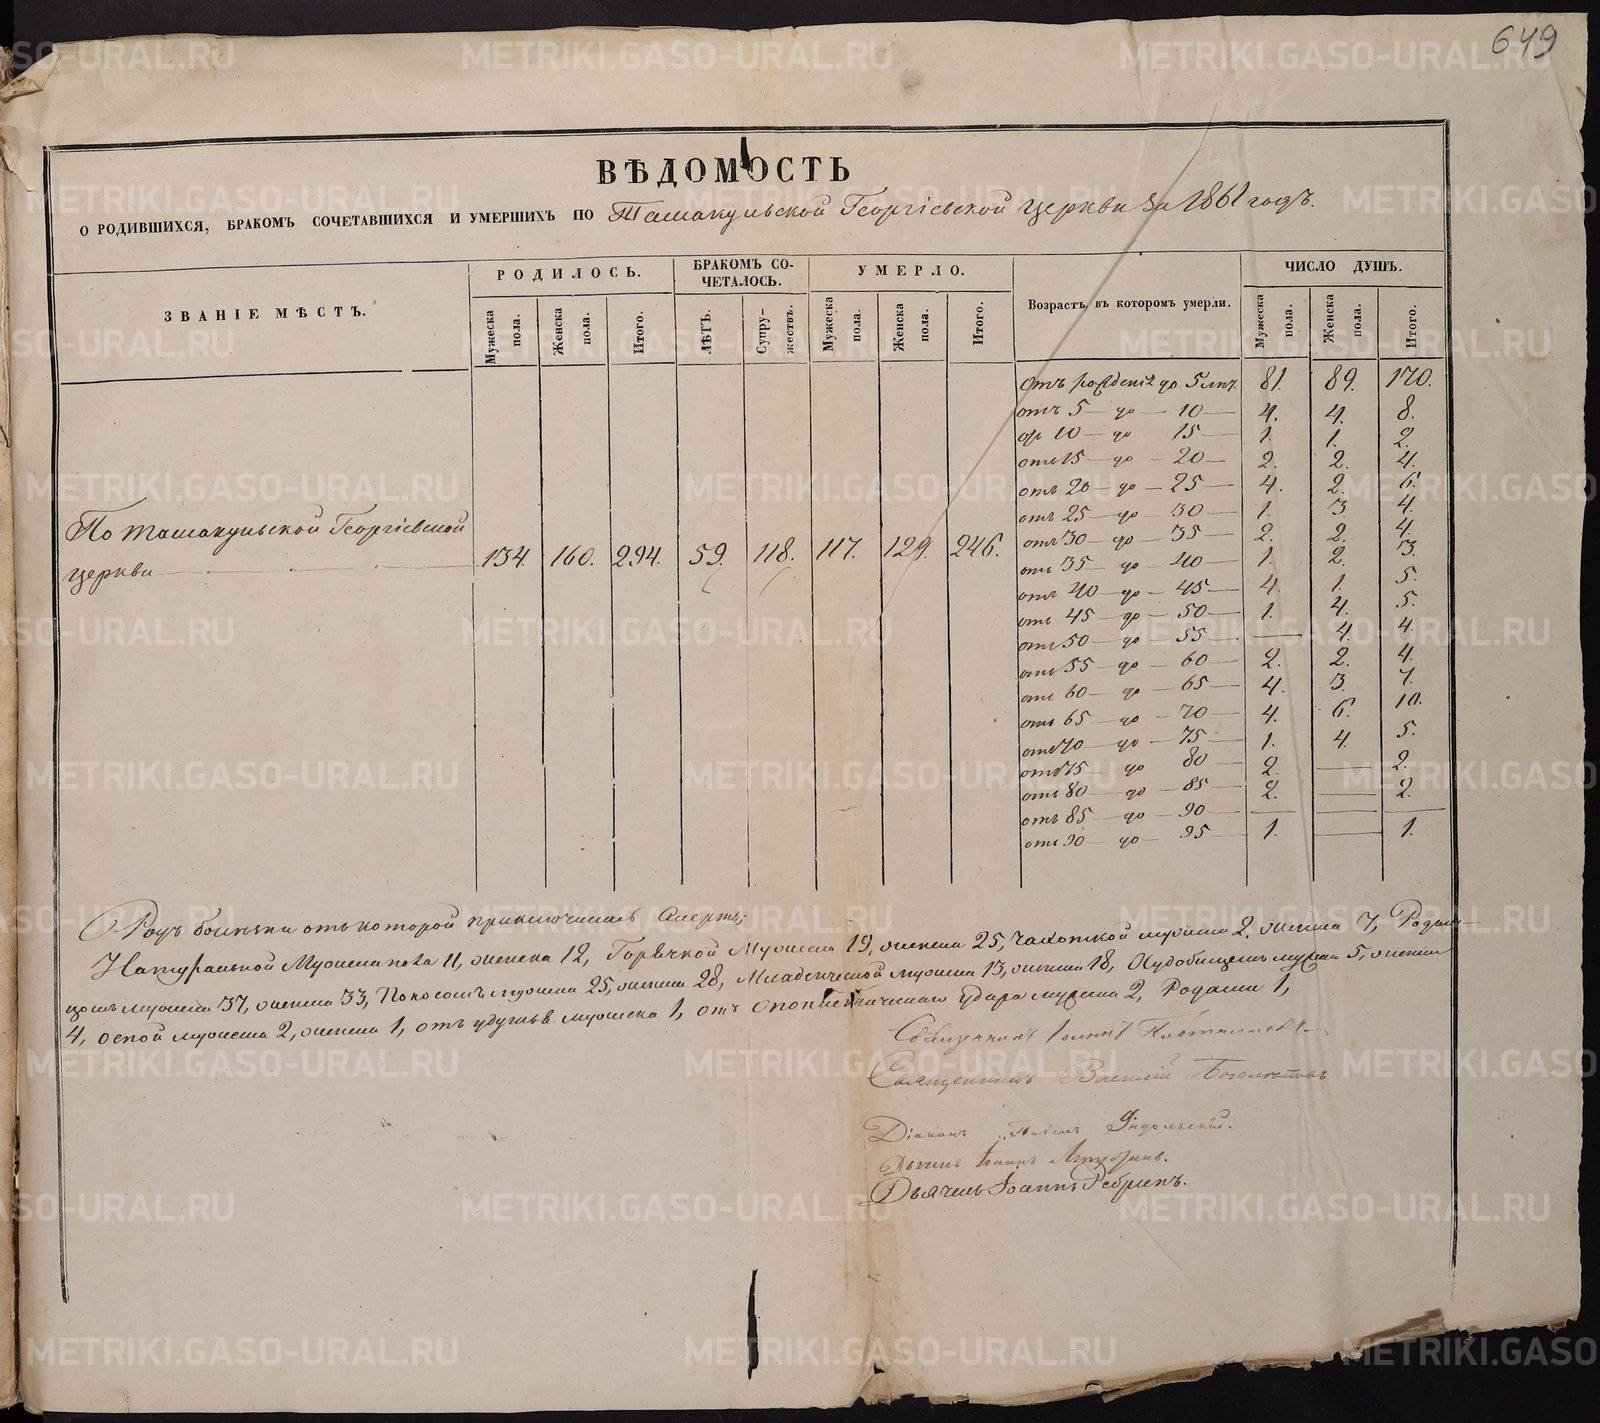 649
ВѢДОМОСТЬ
О РОДИВШИХСЯ, БРАКОМЪ СОЧЕТАВШИХСЯ И УМЕРШИХЪ ПО Ташакульской Георгіевской церкви за 1861 годъ.
ЗВАНІЕ МѢСТЪ.
РОДИЛОСЬ.
БРАКОМЪ СО-
ЧЕТАЛОСЬ.
УМЕРЛО.
Возрастъ, въ которомъ умерли.
ЧИСЛО ДУШЪ.
Мужеска пола.
Женска пола.
Итого.
ЛѢТЪ.
Супру-
жествъ.
Мужеска пола.
Женска пола.
Итого.
Мужеска пола.
Женска пола.
Итого.
По Ташакульской Георгіевской
церкви 134. 160. 294. 59. 118. 117. 129. 246.
Отъ рожденія до 5 лѣт. 81. 89. 170.
отъ 5 до 10 4. 4. 8.
от 10 до 15 1. 1. 2.
отъ 15 до 20 2. 2. 4.
отъ 20 до 25 4. 2. 6.
отъ 25 до 30 1. 3 4.
отъ 30 до 35 2. 2. 4.
отъ 35 до 40 1. 2. 3.
отъ 40 до 45 4. 1. 5.
отъ 45 до 50 1. 4. 5.
отъ 50 до 55 — 4. 4.
отъ 55 до 60 2. 2. 4.
отъ 60 до 65 4. 3. 7.
отъ 65 до 70 4. 6. 10.
отъ 70 до 75 1. 4. 5.
отъ 75 до 80 2. — 2.
отъ 80 до 85 2. — 2.
отъ 85 до 90 — — —
отъ 90 до 95 1. — 1.
Родъ болѣзни отъ которой приключилась смерть;
Натуральной Мужеска пола 11, женска 12, Горячкой Мужеска 19, женска 25, Чахоткой мужеска 2, женска 7, Родим-
цомъ мужеска 37, женска 33, Поносомъ мужеска 25, женска 28, Младенческой мужеска 13, женска 18, Худобищемъ мужеска 5, женска
4, оспой мужеска 2, женска 1, отъ удушья мужеска 1, отъ опоплексическаго удара мужеска 2, Родами 1,
Священникъ Іоаннъ
Священникъ Василій
Діаконъ Павелъ
Дьячекъ Іоаннъ
Дьячекъ Іоаннъ Ребринъ.
METRIKI.GASO-URAL.RU